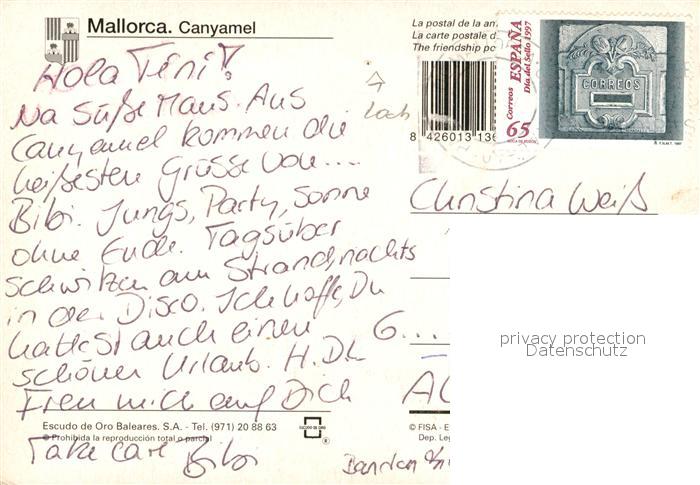 Mallorca. Canyamel
Hola Tini!
Na süße Maus. Aus
Canyamel kommen die
heißesten Grüsse von....
Bibi. Jungs, Party, Sonne
ohne Ende. Tagsüber
schwitzen am Strand, nachts
in der Disco. Ich hoffe, Du
hattest auch einen
schönen Urlaub. H.D.L
Freu mich auf Dich
Escudo de Oro Baleares. S.A. - Tel. (971) 20 88 63
© Prohibida la reproducción total o parcial
ESCUDO DE ORO
®
Take care Bibi
La postal de la am
La carte postale d
The friendship po
8 426013 136
Correos ESPAÑA
Día del Sello 1997
65
CORREOS
Christina Weiß
G...
privacy protection
Datenschutz
© FISA - E
Dep. Leg